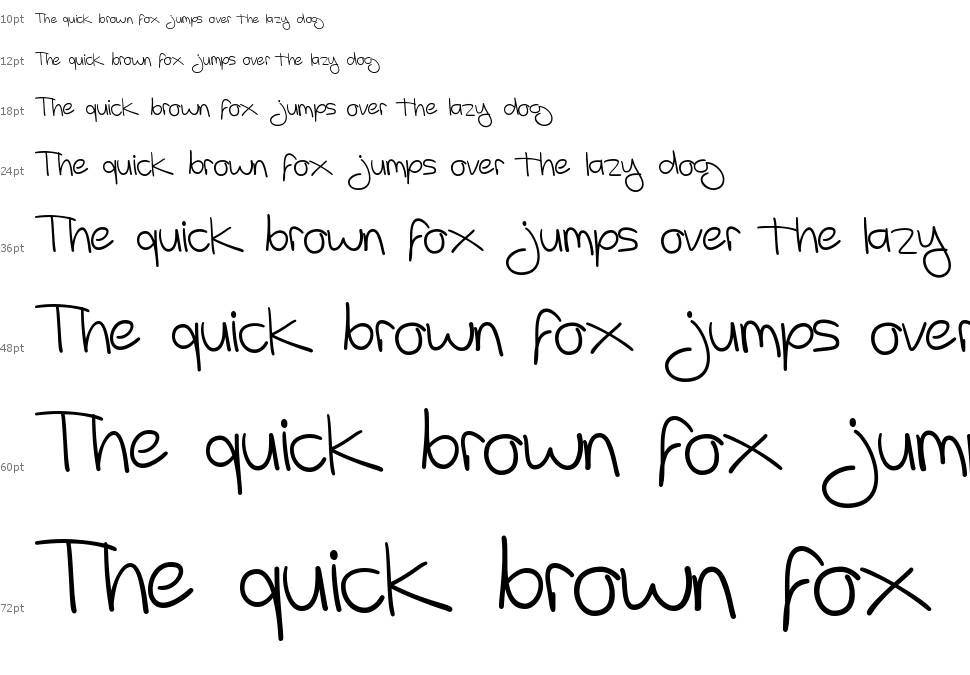 10pt The quick brown fox jumps over the lazy dog
12pt The quick brown fox jumps over the lazy dog
18pt The quick brown fox jumps over the lazy dog
24pt The quick brown fox jumps over the lazy dog
36pt The quick brown fox jumps over the lazy
48pt The quick brown fox jumps over
60pt The quick brown fox jum
72pt The quick brown fox